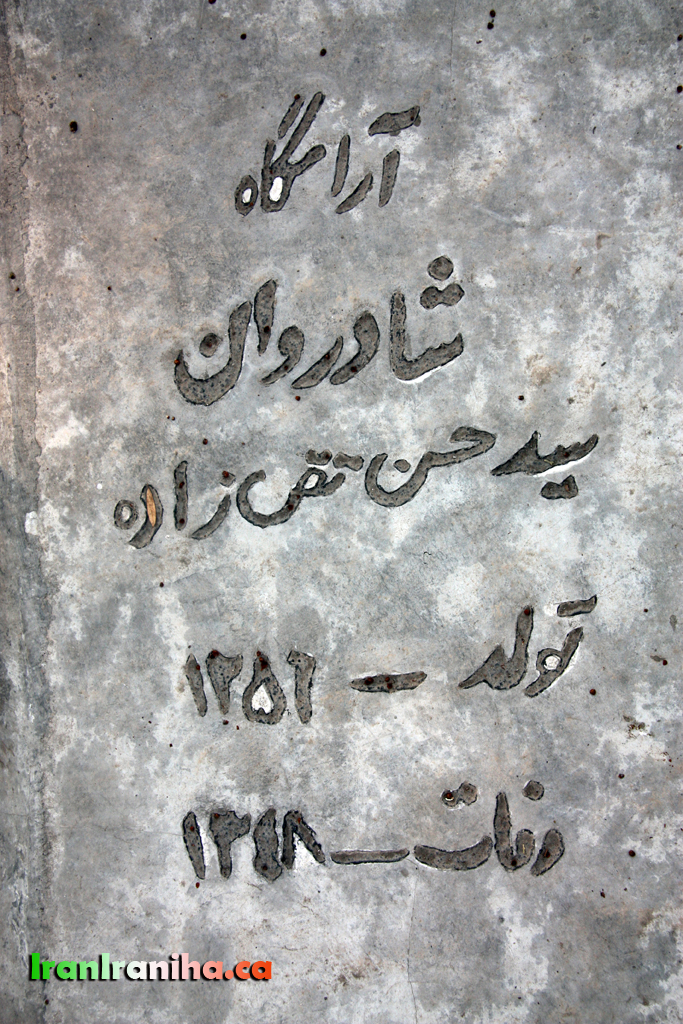 آرامگاه
شادروان
سید حسن تقی زاده
تولد - ۱۲۵۶
وفات - ۱۳۴۸
IranIraniha.ca